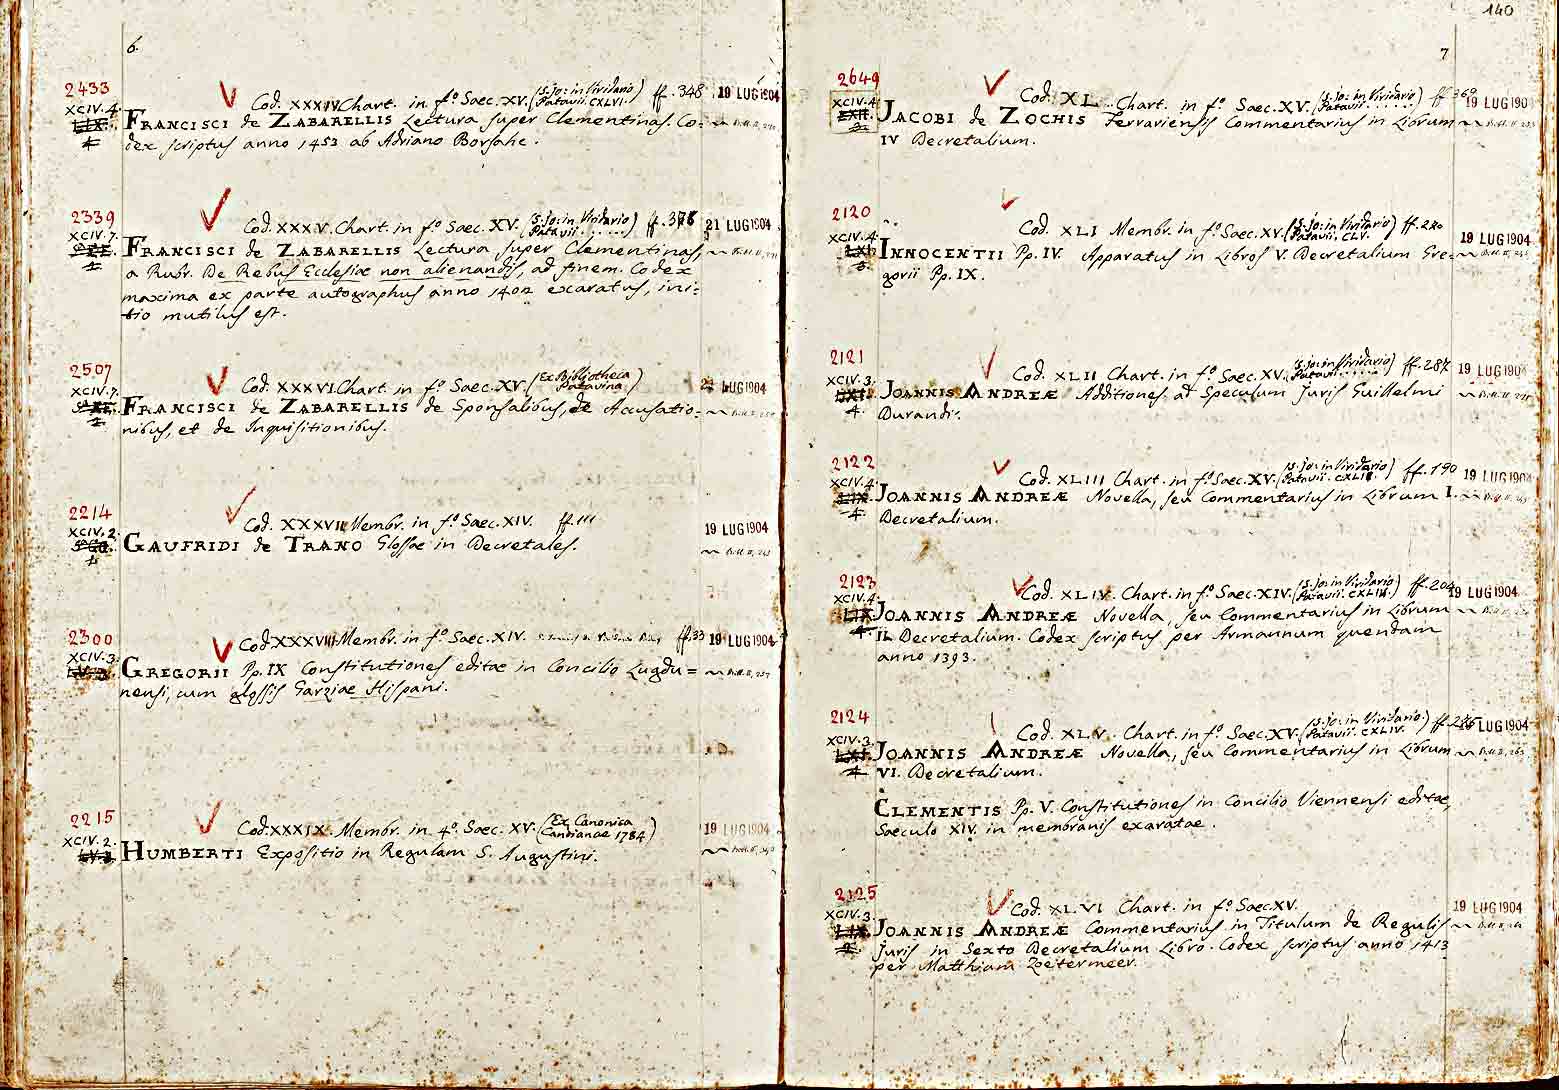 6.
2433
XCIV. 4.
Cod. XXXIV Chart. in f.º Saec. XV. (S. Jo: in Viridario Patavii. CXLVI.) ff. 348 19 LUG 1904
FRANCISCI de ZABARELLIS Lectura super Clementinas. Co=
dex scriptus anno 1453 ab Adriano
2339
XCIV. 7.
Cod. XXXV. Chart. in f.º Saec. XV. (S. Jo: in Viridario Patavii ......) ff. 21 LUG 1904
FRANCISCI de ZABARELLIS Lectura super Clementinas,
a Rubr. De Rebus Ecclesiae non alienandis, ad finem. Codex
maxima ex parte autographus anno 1402 exaratus, ini=
tio mutilus est.
2507
XCIV. 7.
Cod. XXXVI. Chart. in f.º Saec. XV. (Ex Bibliotheca Patavina.) LUG 1904
FRANCISCI de ZABARELLIS de Sponsalibus, de Accusatio=
nibus, et de Inquisitionibus.
2214
XCIV. 2.
Cod. XXXVII Membr. in f.º Saec. XIV. ff. 111 19 LUG 1904
GAUFRIDI de TRANO Glossae in Decretales.
2300
XCIV. 3.
Cod. XXXVIII Membr. in f.º Saec. XIV. ff. 33 19 LUG 1904
GREGORII Pp. IX Constitutiones editae in Concilio Lugdu=
nensi, cum glossis Garziae Hispani.
2215
XCIV. 2.
Cod. XXXIX. Membr. in 4º. Saec. XV. (Ex Canonica Candianae 1784) 19 LUG 1904
HUMBERTI Expositio in Regulam S. Augustini.
140
7
2649
XCIV. 4
Cod. XL. Chart. in f.º Saec. XV. (S. Jo: in Viridario Patavii ......) ff. 369 19 LUG 190
JACOBI de ZOCHIS Ferrariensis Commentarius in Librum
IV Decretalium.
2120
XCIV. 4.
Cod. XLI Membr. in f.º Saec. XV. (S. Jo: in Viridario Patavii. CLV.) ff. 19 LUG 1904
INNOCENTII Pp. IV. Apparatus in Libros V. Decretalium Gre=
gorii Pp. IX.
2121
XCIV. 3.
Cod. XLII Chart. in f.º Saec. XV. (S. Jo: in Viridario Patavii ......) ff. 287 19 LUG 190
JOANNIS ANDREÆ Additiones ad Speculum Juris Guillelmi
Durandi.
2122
XCIV. 4.
Cod. XLIII Chart. in f.º Saec. XV. (S. Jo: in Viridario Patavii. CXLII.) ff. 190 19 LUG 190
JOANNIS ANDREÆ Novella, seu Commentarius in Librum I.
Decretalium.
2123
XCIV. 4.
Cod. XLIV. Chart. in f.º Saec. XIV. (S. Jo: in Viridario Patavii. CXLIII.) ff. 204 19 LUG 1904
JOANNIS ANDREÆ Novella, seu Commentarius in Librum
II. Decretalium. Codex scriptus per Armannum quendam
anno 1393.
2124
XCIV. 3.
Cod. XLV. Chart. in f.º Saec. XV. (S. Jo: in Viridario Patavii. CXLIV.) ff. LUG 1904
JOANNIS ANDREÆ Novella, seu Commentarius in Librum
VI. Decretalium.
CLEMENTIS Pp. V. Constitutiones in Concilio Viennensi editae,
Saeculo XIV. in membranis exaratae.
2125
XCIV. 3.
Cod. XLVI Chart. in f.º Saec. XV. 19 LUG 1904
JOANNIS ANDREÆ Commentarius in Titulum de Regulis
Juris in Sexto Decretalium Libro. Codex scriptus anno 1413
per Matthiam Zoetermeer.